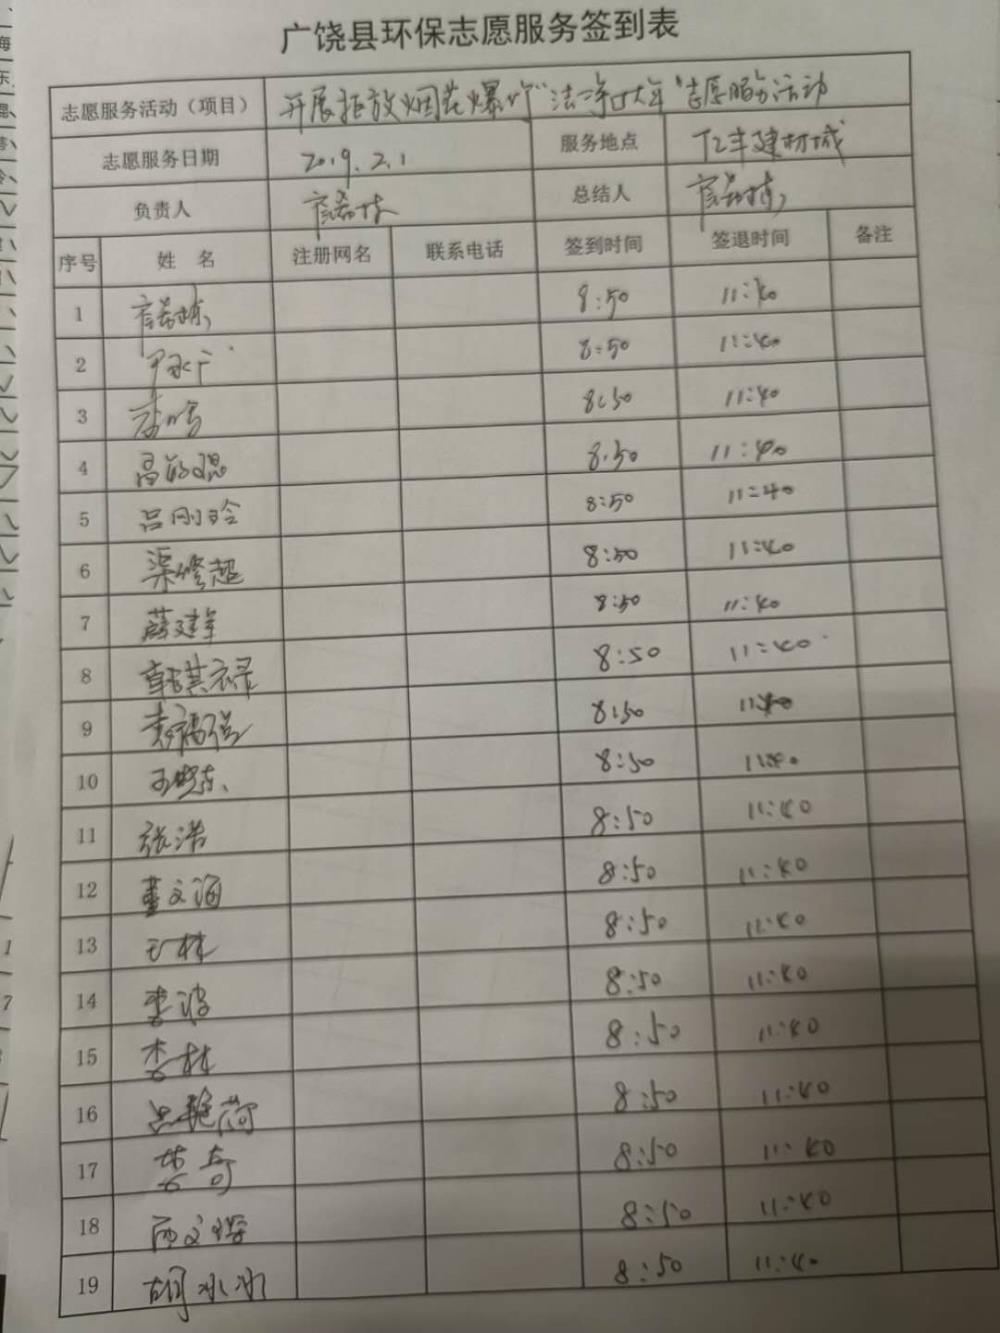 广饶县环保志愿服务签到表
志愿服务活动（项目） 开展拒放烟花爆竹"洁净过大年"志愿服务活动
志愿服务日期 2019.2.1 服务地点 亿丰建材城
负责人 总结人
序号 姓 名 注册网名 联系电话 签到时间 签退时间 备注
1 8:50 11:40
2 8:50 11:40
3 8:50 11:40
4 8:50 11:40
5 吕刚玲 8:50 11:40
6 渠修超 8:50 11:40
7 薛建军 8:50 11:40
8 韩其禄 8:50 11:40
9 8:50 11:40
10 王晓东 8:50 11:40
11 张浩 8:50 11:40
12 董文海 8:50 11:40
13 王林 8:50 11:40
14 李波 8:50 11:40
15 李林 8:50 11:40
16 吕艳荷 8:50 11:40
17 8:50 11:40
18 8:50 11:40
19 胡冰冰 8:50 11:40